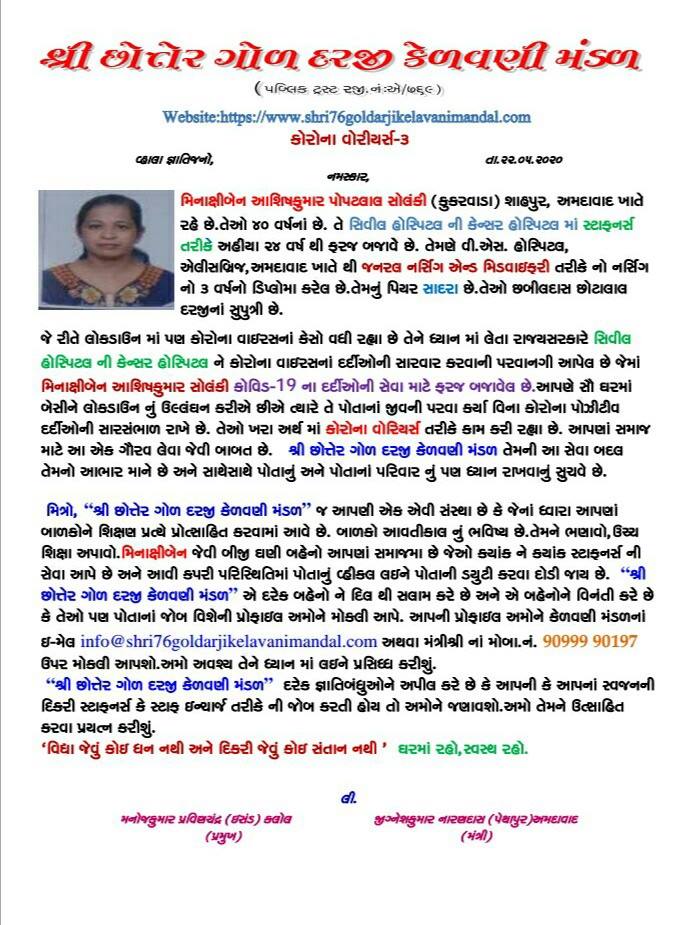 શ્રી છોત્તેર ગોળ દરજી કેળવણી મંડળ
(પબ્લિક ટ્રસ્ટ રજી.નં:એ/૭૬૯)
Website:https://www.shri76goldarjikelavanimandal.com
કોરોના વોરીયર્સ-૩
વ્હાલા જ્ઞાતિજનો, તા.૨૨.૦૫.૨૦૨૦
નમસ્કાર,
મિનાક્ષીબેન આશિષકુમાર પોપટલાલ સોલંકી (કુકરવાડા) શાહપુર, અમદાવાદ ખાતે
રહે છે.તેઓ ૪૦ વર્ષનાં છે. તે સિવીલ હોસ્પિટલ ની કેન્સર હોસ્પિટલ માં સ્ટાફનર્સ
તરીકે અહીયા ૨૪ વર્ષ થી ફરજ બજાવે છે. તેમણે વી.એસ. હોસ્પિટલ,
એલીસબ્રિજ,અમદાવાદ ખાતે થી જનરલ નર્સિગ એન્ડ મિડવાઇફરી તરીકે નો નર્સિગ
નો ૩ વર્ષનો ડિપ્લોમા કરેલ છે.તેમનું પિયર સાદરા છે.તેઓ છબીલદાસ છોટાલાલ
દરજીનાં સુપુત્રી છે.
જે રીતે લોકડાઉન માં પણ કોરોના વાઇરસનાં કેસો વધી રહ્યા છે તેને ધ્યાન માં લેતા રાજ્યસરકારે સિવીલ
હોસ્પિટલ ની કેન્સર હોસ્પિટલ ને કોરોના વાઇરસનાં દર્દીઓની સારવાર કરવાની પરવાનગી આપેલ છે જેમાં
મિનાક્ષીબેન આશિષકુમાર સોલંકી કોવિડ-19 ના દર્દીઓની સેવા માટે ફરજ બજાવેલ છે.આપણે સૌ ઘરમાં
બેસીને લોકડાઉન નું ઉલ્લંઘન કરીએ છીએ ત્યારે તે પોતાનાં જીવની પરવા કર્યા વિના કોરોના પોઝીટીવ
દર્દીઓની સારસંભાળ રાખે છે. તેઓ ખરા અર્થ માં કોરોના વોરિયર્સ તરીકે કામ કરી રહ્યા છે. આપણાં સમાજ
માટે આ એક ગૌરવ લેવા જેવી બાબત છે. શ્રી છોત્તેર ગોળ દરજી કેળવણી મંડળ તેમની આ સેવા બદલ
તેમનો આભાર માને છે અને સાથેસાથે પોતાનું અને પોતાનાં પરિવાર નું પણ ધ્યાન રાખવાનું સુચવે છે.
મિત્રો, “શ્રી છોત્તેર ગોળ દરજી કેળવણી મંડળ” જ આપણી એક એવી સંસ્થા છે કે જેનાં ધ્વારા આપણાં
બાળકોને શિક્ષણ પ્રત્યે પ્રોત્સાહિત કરવામાં આવે છે. બાળકો આવતીકાલ નું ભવિષ્ય છે.તેમને ભણાવો,ઉચ્ચ
શિક્ષા અપાવો.મિનાક્ષીબેન જેવી બીજી ઘણી બહેનો આપણાં સમાજમા છે જેઓ ક્યાંક ને ક્યાંક સ્ટાફનર્સ ની
સેવા આપે છે અને આવી કપરી પરિસ્થિતિમાં પોતાનું વ્હીકલ લઇને પોતાની ડ્યુટી કરવા દોડી જાય છે. “શ્રી
છોત્તેર ગોળ દરજી કેળવણી મંડળ” એ દરેક બહેનો ને દિલ થી સલામ કરે છે અને એ બહેનોને વિનંતી કરે છે
કે તેઓ પણ પોતાનાં જોબ વિશેની પ્રોફાઇલ અમોને મોકલી આપે. આપની પ્રોફાઇલ અમોને કેળવણી મંડળનાં
ઇ-મેલ info@shri76goldarjikelavanimandal.com અથવા મંત્રીશ્રી નાં મોબા.નં. 90999 90197
ઉપર મોકલી આપશો.અમો અવશ્ય તેને ધ્યાન માં લઇને પ્રસિધ્ધ કરીશું.
“શ્રી છોત્તેર ગોળ દરજી કેળવણી મંડળ” દરેક જ્ઞાતિબંધુઓને અપીલ કરે છે કે આપની કે આપનાં સ્વજનની
દિકરી સ્ટાફનર્સ કે સ્ટાફ ઇન્ચાર્જ તરીકે ની જોબ કરતી હોય તો અમોને જણાવશો.અમો તેમને ઉત્સાહિત
કરવા પ્રયત્ન કરીશું.
‘વિદ્યા જેવું કોઇ ધન નથી અને દિકરી જેવું કોઇ સંતાન નથી ’ ઘરમાં રહો,સ્વસ્થ રહો.
લી.
મનોજકુમાર પ્રવિણચંદ્ર (ઇસંડ) કલોલ જીગ્નેશકુમાર નારણદાસ (પેથાપુર)અમદાવાદ
(પ્રમુખ) (મંત્રી)